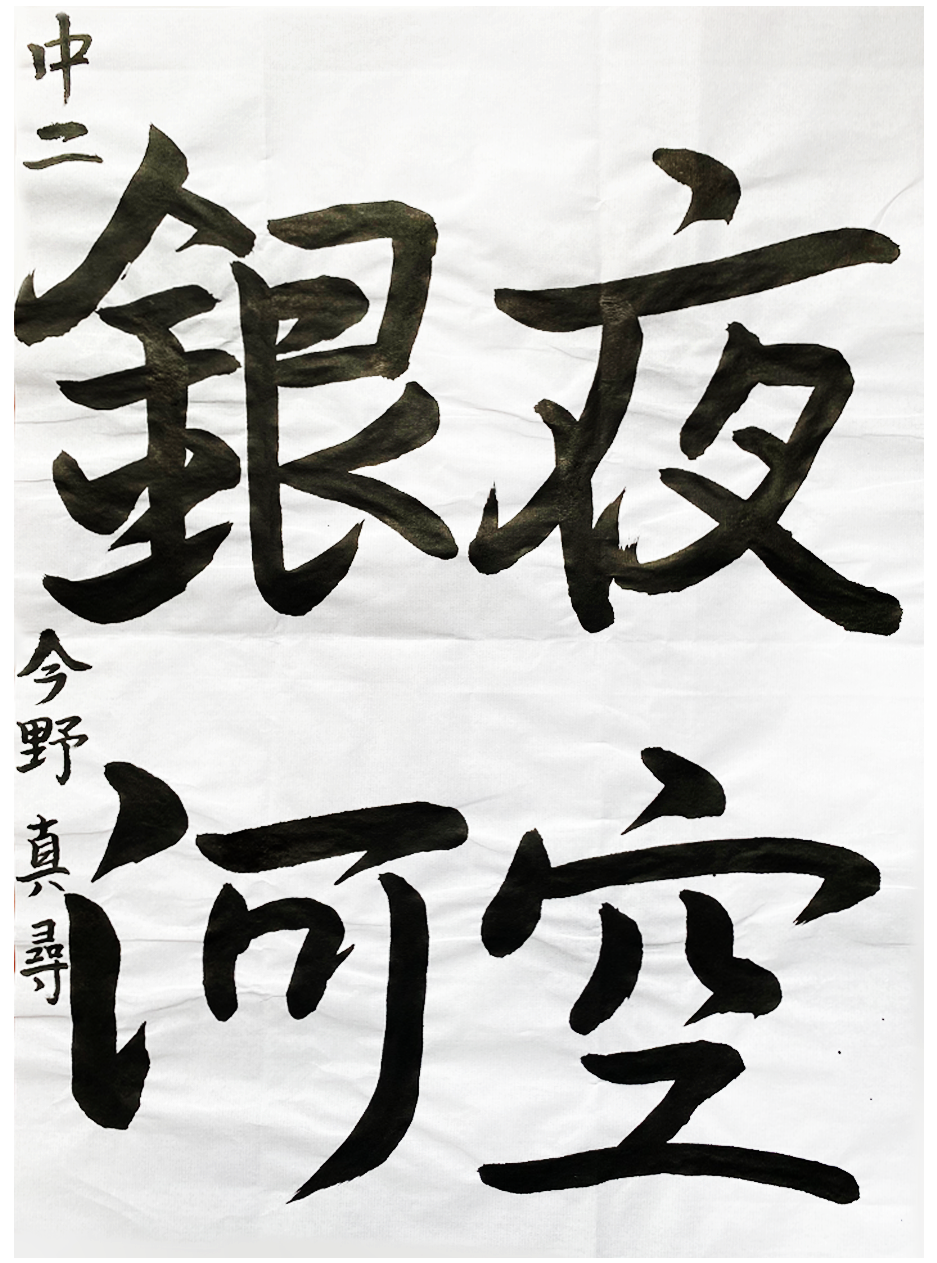 夜空
銀河
中二 今野真尋